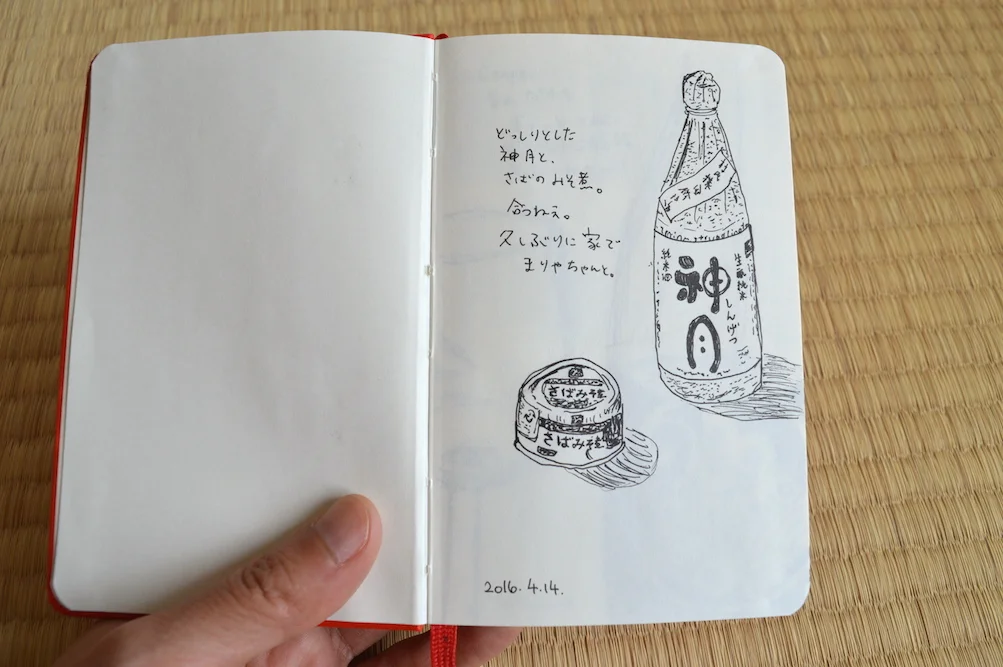 どっしりとした
神月と、
さばのみそ煮。
合うねえ。
久しぶりに家で
まりやちゃんと。
純米酒
神月
しんげつ
生酛純米
さばみそ煮
さばみそ煮
2016.4.14.